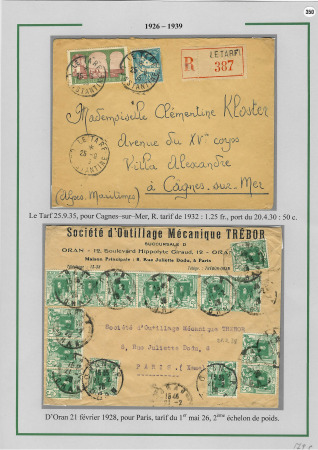 350
1926 - 1939
LE TARF
R
387
LE TARF
Mademoiselle Clémentine Kloster
Avenue du XVe corps
Villa Alexandre
à Cagnes-sur-Mer
(Alpes Maritimes)
Le Tarf 25.9.35, pour Cagnes–sur–Mer, R. tarif de 1932 : 1.25 fr., port du 20.4.30 : 50 c.
Société d'Outillage Mécanique TRÉBOR
SUCCURSALE D
ORAN - 12, Boulevard Hippolyte Giraud, 12 - ORAN
Maison Principale : 6, Rue Juliette Dodu, à Paris
Société d'Outillage Mécanique TREBOR
6, Rue Juliette Dodu, 6
PARIS.
D'Oran 21 février 1928, pour Paris, tarif du 1er mai 26, 2ème échelon de poids.